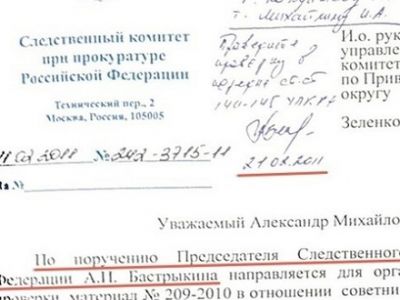 т. Михайлину И.А.
Следственный комитет
при прокуратуре
Российской Федерации
Технический пер., 2
Москва, Россия, 105005
Проведите
проверку в
порядке ст.ст.
144-145 УПК РФ
21.02.2011
И.о. рук
управле
комитет
по Прив
округу
Зеленко
11 02 2011 № 242-3715-11
На №
Уважаемый Александр Михайло
По поручению Председателя Следственног
Федерации А.И. Бастрыкина направляется для орга
проверки материал № 209-2010 в отношении советни